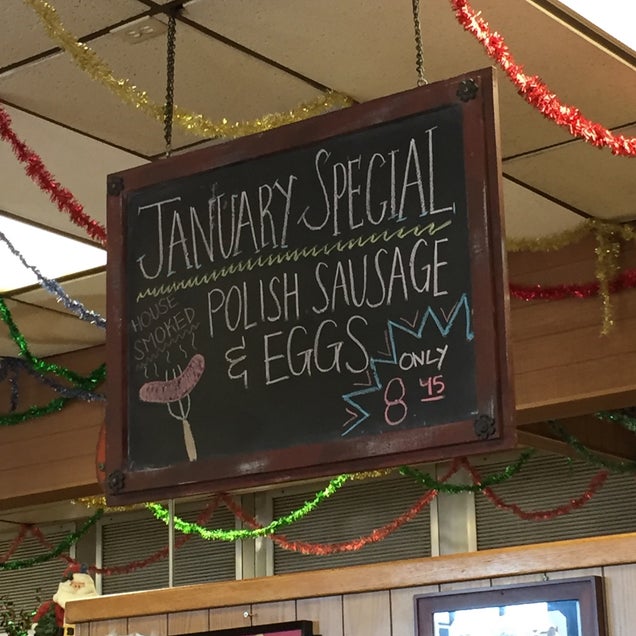 JANUARY SPECIAL
HOUSE
SMOKED
POLISH SAUSAGE
& EGGS
ONLY
8 45